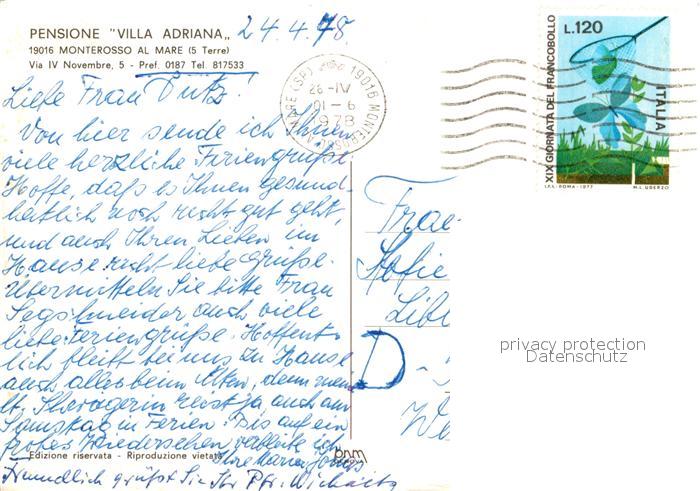 PENSIONE "VILLA ADRIANA"
19016 MONTEROSSO AL MARE (5 Terre)
Via IV Novembre, 5 - Pref. 0187 Tel. 817533
24.4.78
Liebe Frau
Von hier sende ich Ihnen
viele herzliche Feriengrüße.
Hoffe, daß es Ihnen gesund-
heitlich noch recht gut geht,
und auch Ihren Lieben im
Hause recht liebe Grüße.
Übermitteln Sie bitte Frau
Segschneider auch viele
liebe Feriengrüße. Hoffent-
lich bleibt bei uns zu Hause
auch alles beim Alten, denn
Schwägerin reist ja auch am
Samstag in Ferien. Bis auf ein
frohes Wiedersehen verbleibe ich
Ihre
Freundlich grüßt Sie Ihr Pfr.
Edizione riservata - Riproduzione vietata
bnm
19016 MONTEROSSO
MARE (SP)
26-IV
01-6
1978
L.120
XIX GIORNATA DEL FRANCOBOLLO
ITALIA
I.P.S.-ROMA-1977
M.L. UBERZO
Frau
Sofie
D-
privacy protection
Datenschutz